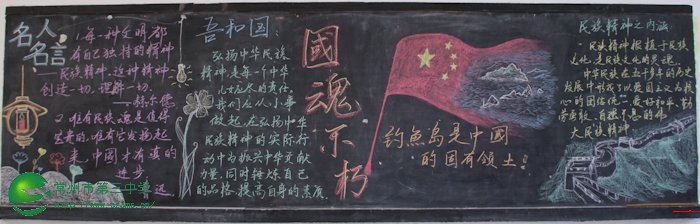 名人
名言
1.每一种文明都
有自己独特的精神
——民族精神,这种精神
创造一切,理解一切.
——赫尔德
2.唯有民族魂是值得
宝贵的,唯有它发扬起
来,中国才有真的
进步.
吾和国:
弘扬中华民族
精神是每个中华
儿女应尽的责任,
我们应从小事
做起,在弘扬中华
民族精神的实际行
动中为振兴中华贡献
力量,同时锤炼自己
的品格,提高自身的素质.
國魂不朽
钓魚島是中國
的固有领土!
民族精神之内涵
民族精神根植于民族
文化,是民族文化的灵魂.
中华民族在五千多年的历史
发展中形成了以爱国主义为核
心的团结统一、爱好和平、勤
劳勇敢、自强不息的伟
大民族精神.
常州市第三中学